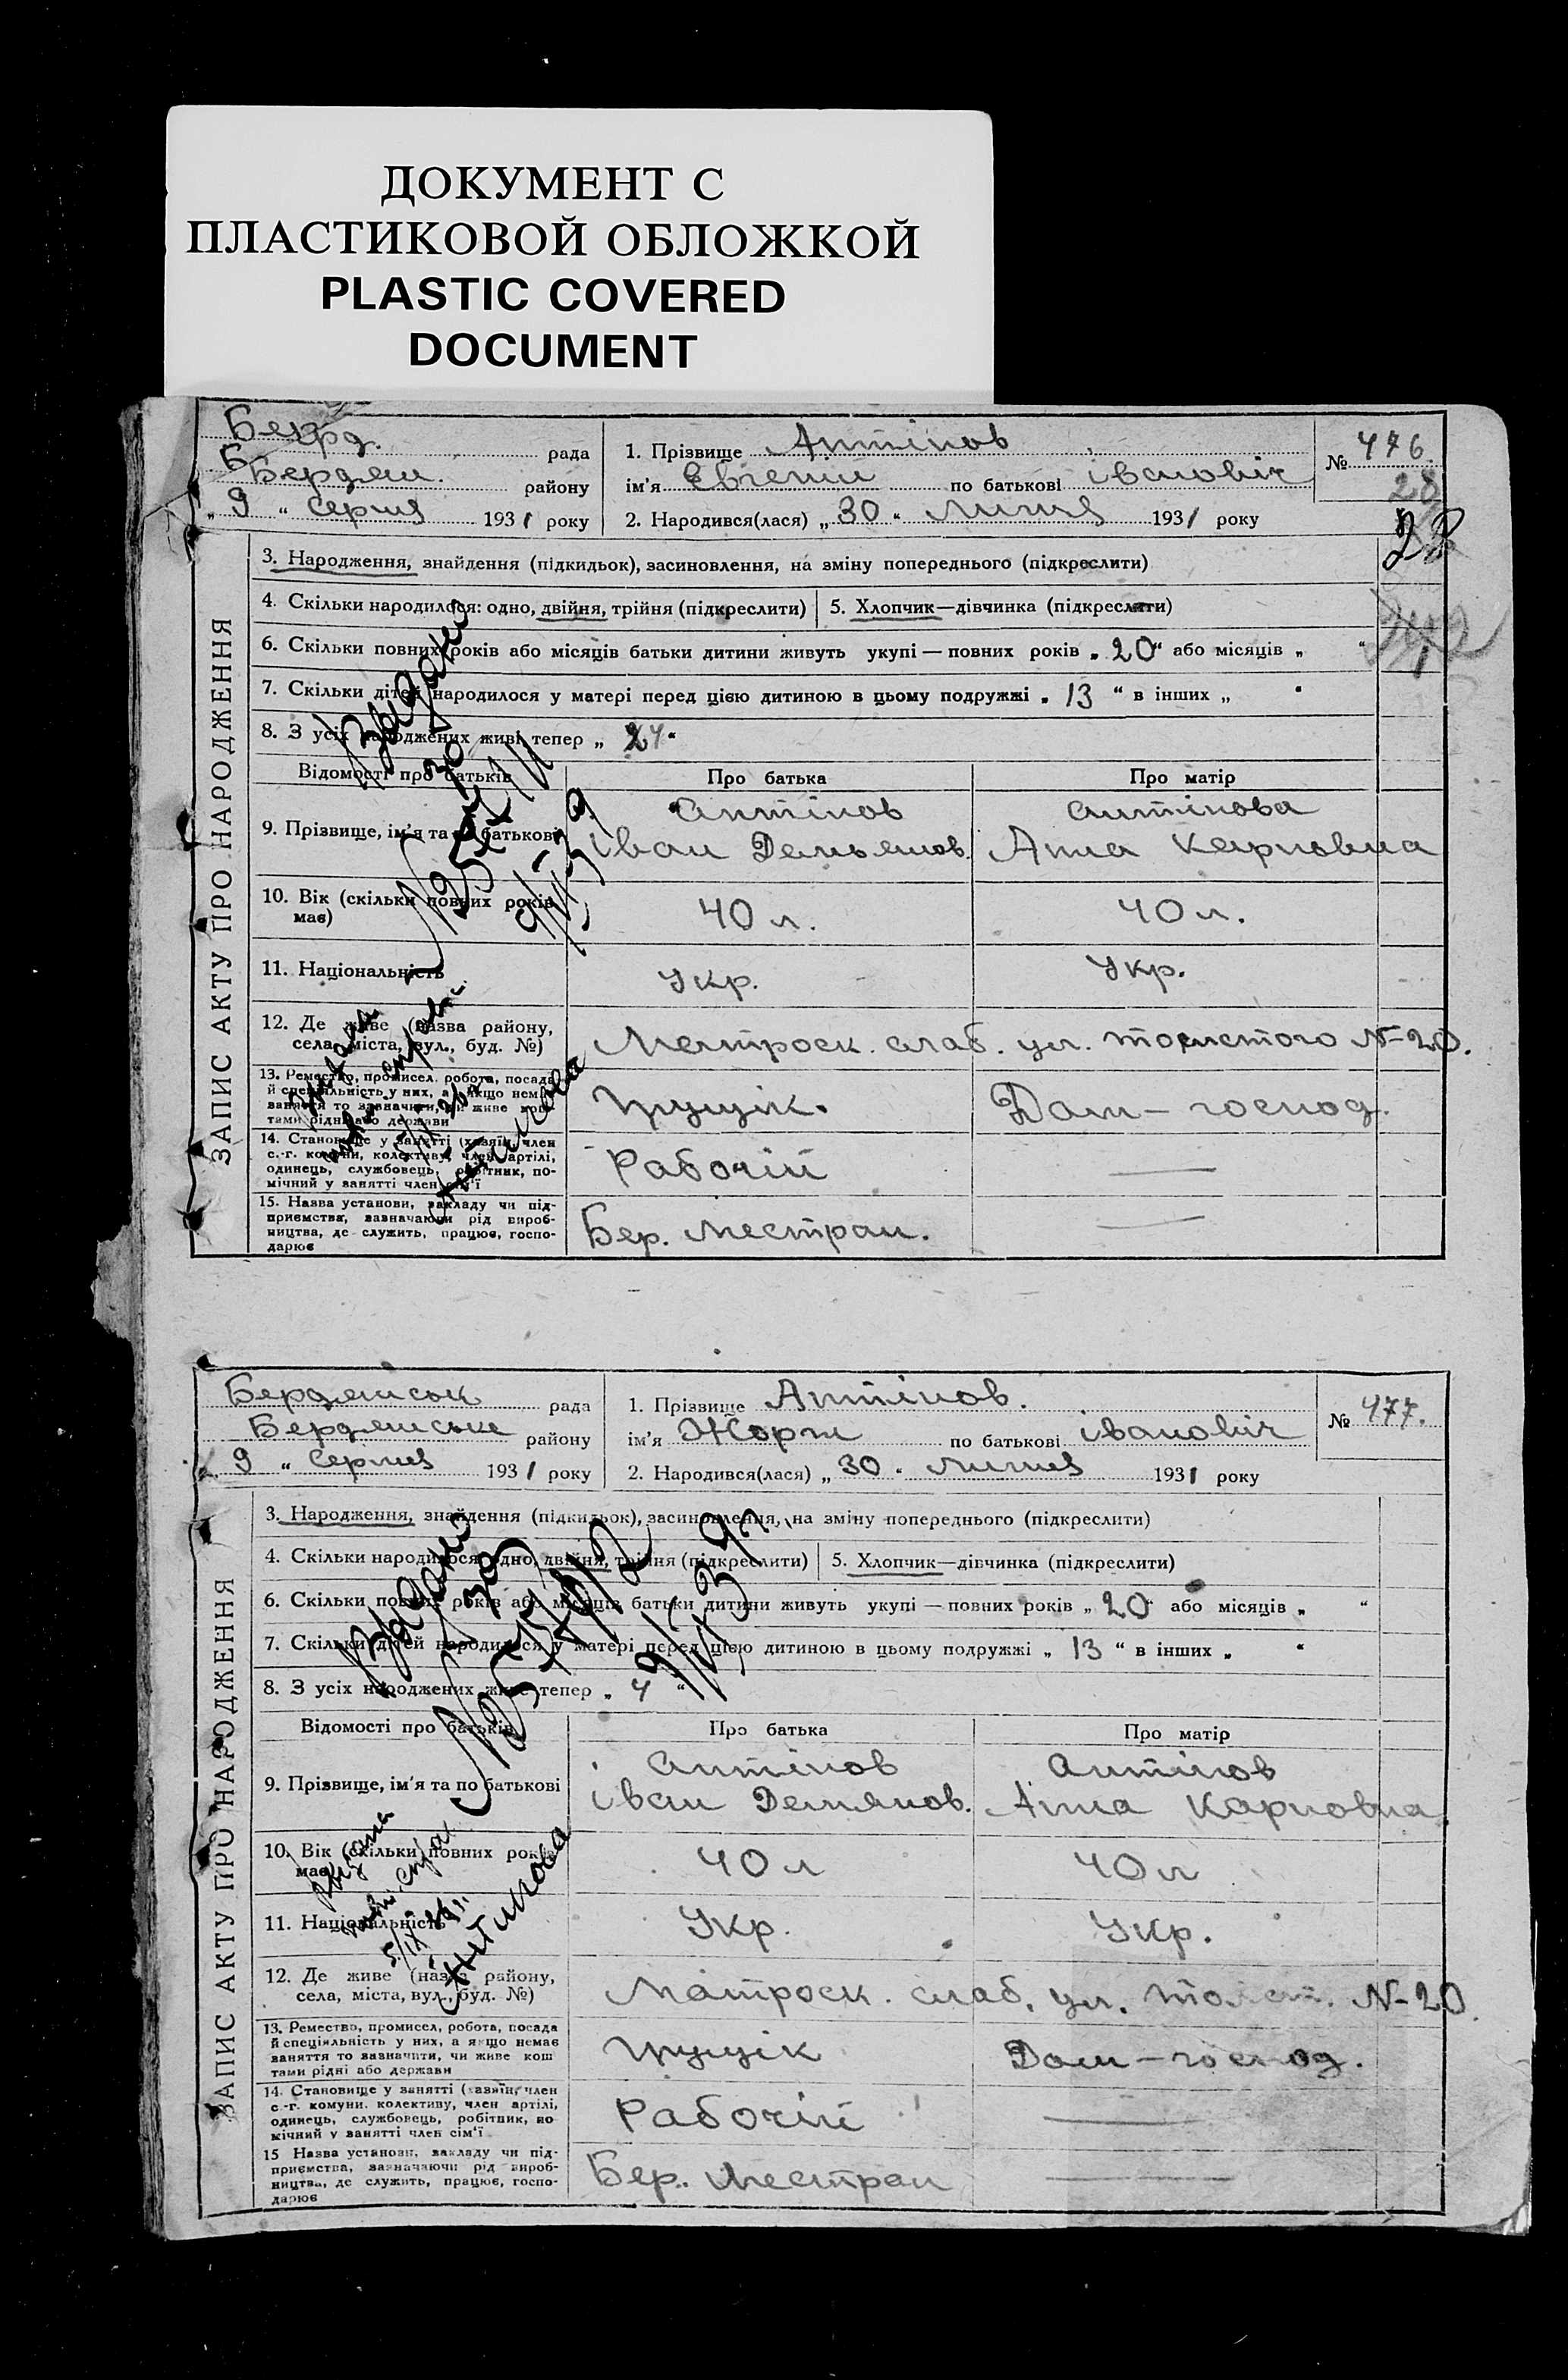 ДОКУМЕНТ С
ПЛАСТИКОВОЙ ОБЛОЖКОЙ
PLASTIC COVERED
DOCUMENT
Берд. рада
Бердян. району
„ 9 “ Серпня 1931 року
1. Прізвище Антінов
ім'я Евгений по батькові івановіч
2. Народився(лася) „ 30 “ Липня 1931 року
№ 476.
28
28
ЗАПИС АКТУ ПРО НАРОДЖЕННЯ
3. Народження, знайдення (підкидьок), засиновлення, на зміну попереднього (підкреслити)
4. Скільки народилося: одно, двійня, трійня (підкреслити) 5. Хлопчик—дівчинка (підкреслити)
6. Скільки повних років або місяців батьки дитини живуть укупі — повних років „ 20 “ або місяців „ “
7. Скільки дітей народилося у матері перед цією дитиною в цьому подружжі „ 13 “ в інших „ “
8. З усіх народжених живі тепер „ 4 “
Відомості про батьків Про батька Про матір
9. Прізвище, ім'я та по батькові
Антінов
Іван Демьянов.
Антінова
Анна Карповна
10. Вік (скільки повних років
має)
40 л. 40 л.
11. Національність Укр. Укр.
12. Де живе (назва району,
села, міста, вул., буд. №)
Матроск. слаб. ул. Толстого №-20.
13. Ремество, промисел, робота, посада
й спеціяльність у них, а якщо немає
заняття то зазначити, чи живе кош-
тами рідні або держави
Грущік. Дом — господ.
14. Становище у занятті (хазяїн, член
с.-г. комуни, колективу, член артілі,
одинець, службовець, робітник, по-
мічний у занятті член сім'ї
Рабочій
15. Назва установи, закладу чи під-
приємства, зазначаючи рід вироб-
ництва, де служить, працює, госпо-
дарює
Бер. Местран.
Видано
9/IX 39
Бердянськ рада
Бердянське району
9 “ Серпня 1931 року
1. Прізвище Антінов.
ім'я Жорж по батькові івановіч
2. Народився(лася) „ 30 “ Липня 1931 року
№ 477.
ЗАПИС АКТУ ПРО НАРОДЖЕННЯ
3. Народження, знайдення (підкидьок), засиновлення, на зміну попереднього (підкреслити)
4. Скільки народилося: одно, двійня, трійня (підкреслити) 5. Хлопчик—дівчинка (підкреслити)
6. Скільки повних років або місяців батьки дитини живуть укупі — повних років „ 20 “ або місяців „ “
7. Скільки дітей народилося у матері перед цією дитиною в цьому подружжі „ 13 “ в інших „ “
8. З усіх народжених живі тепер „ 4 “
Відомості про батьків Про батька Про матір
9. Прізвище, ім'я та по батькові
Антінов
Іван Демянов.
Антінов
Анна Карповна
10. Вік (скільки повних років
має)
40 л 40 л
11. Національність Укр. Укр.
12. Де живе (назва району,
села, міста, вул., буд. №)
Матроск. слаб. ул. Толст. №-20
13. Ремество, промисел, робота, посада
й спеціяльність у них, а якщо немає
заняття то зазначити, чи живе кош
тами рідні або держави
Грущік Дом — господ.
14. Становище у занятті (хазяїн, член
с.-г. комуни, колективу, член артілі,
одинець, службовець, робітник, по
мічний у занятті член сім'ї
Рабочій
15 Назва установи, закладу чи під-
приємства, зазначаючи рід вироб-
ництва, де служить, працює, госпо-
дарює
Бер. Местран
Видано
9/IX 39
Антинова